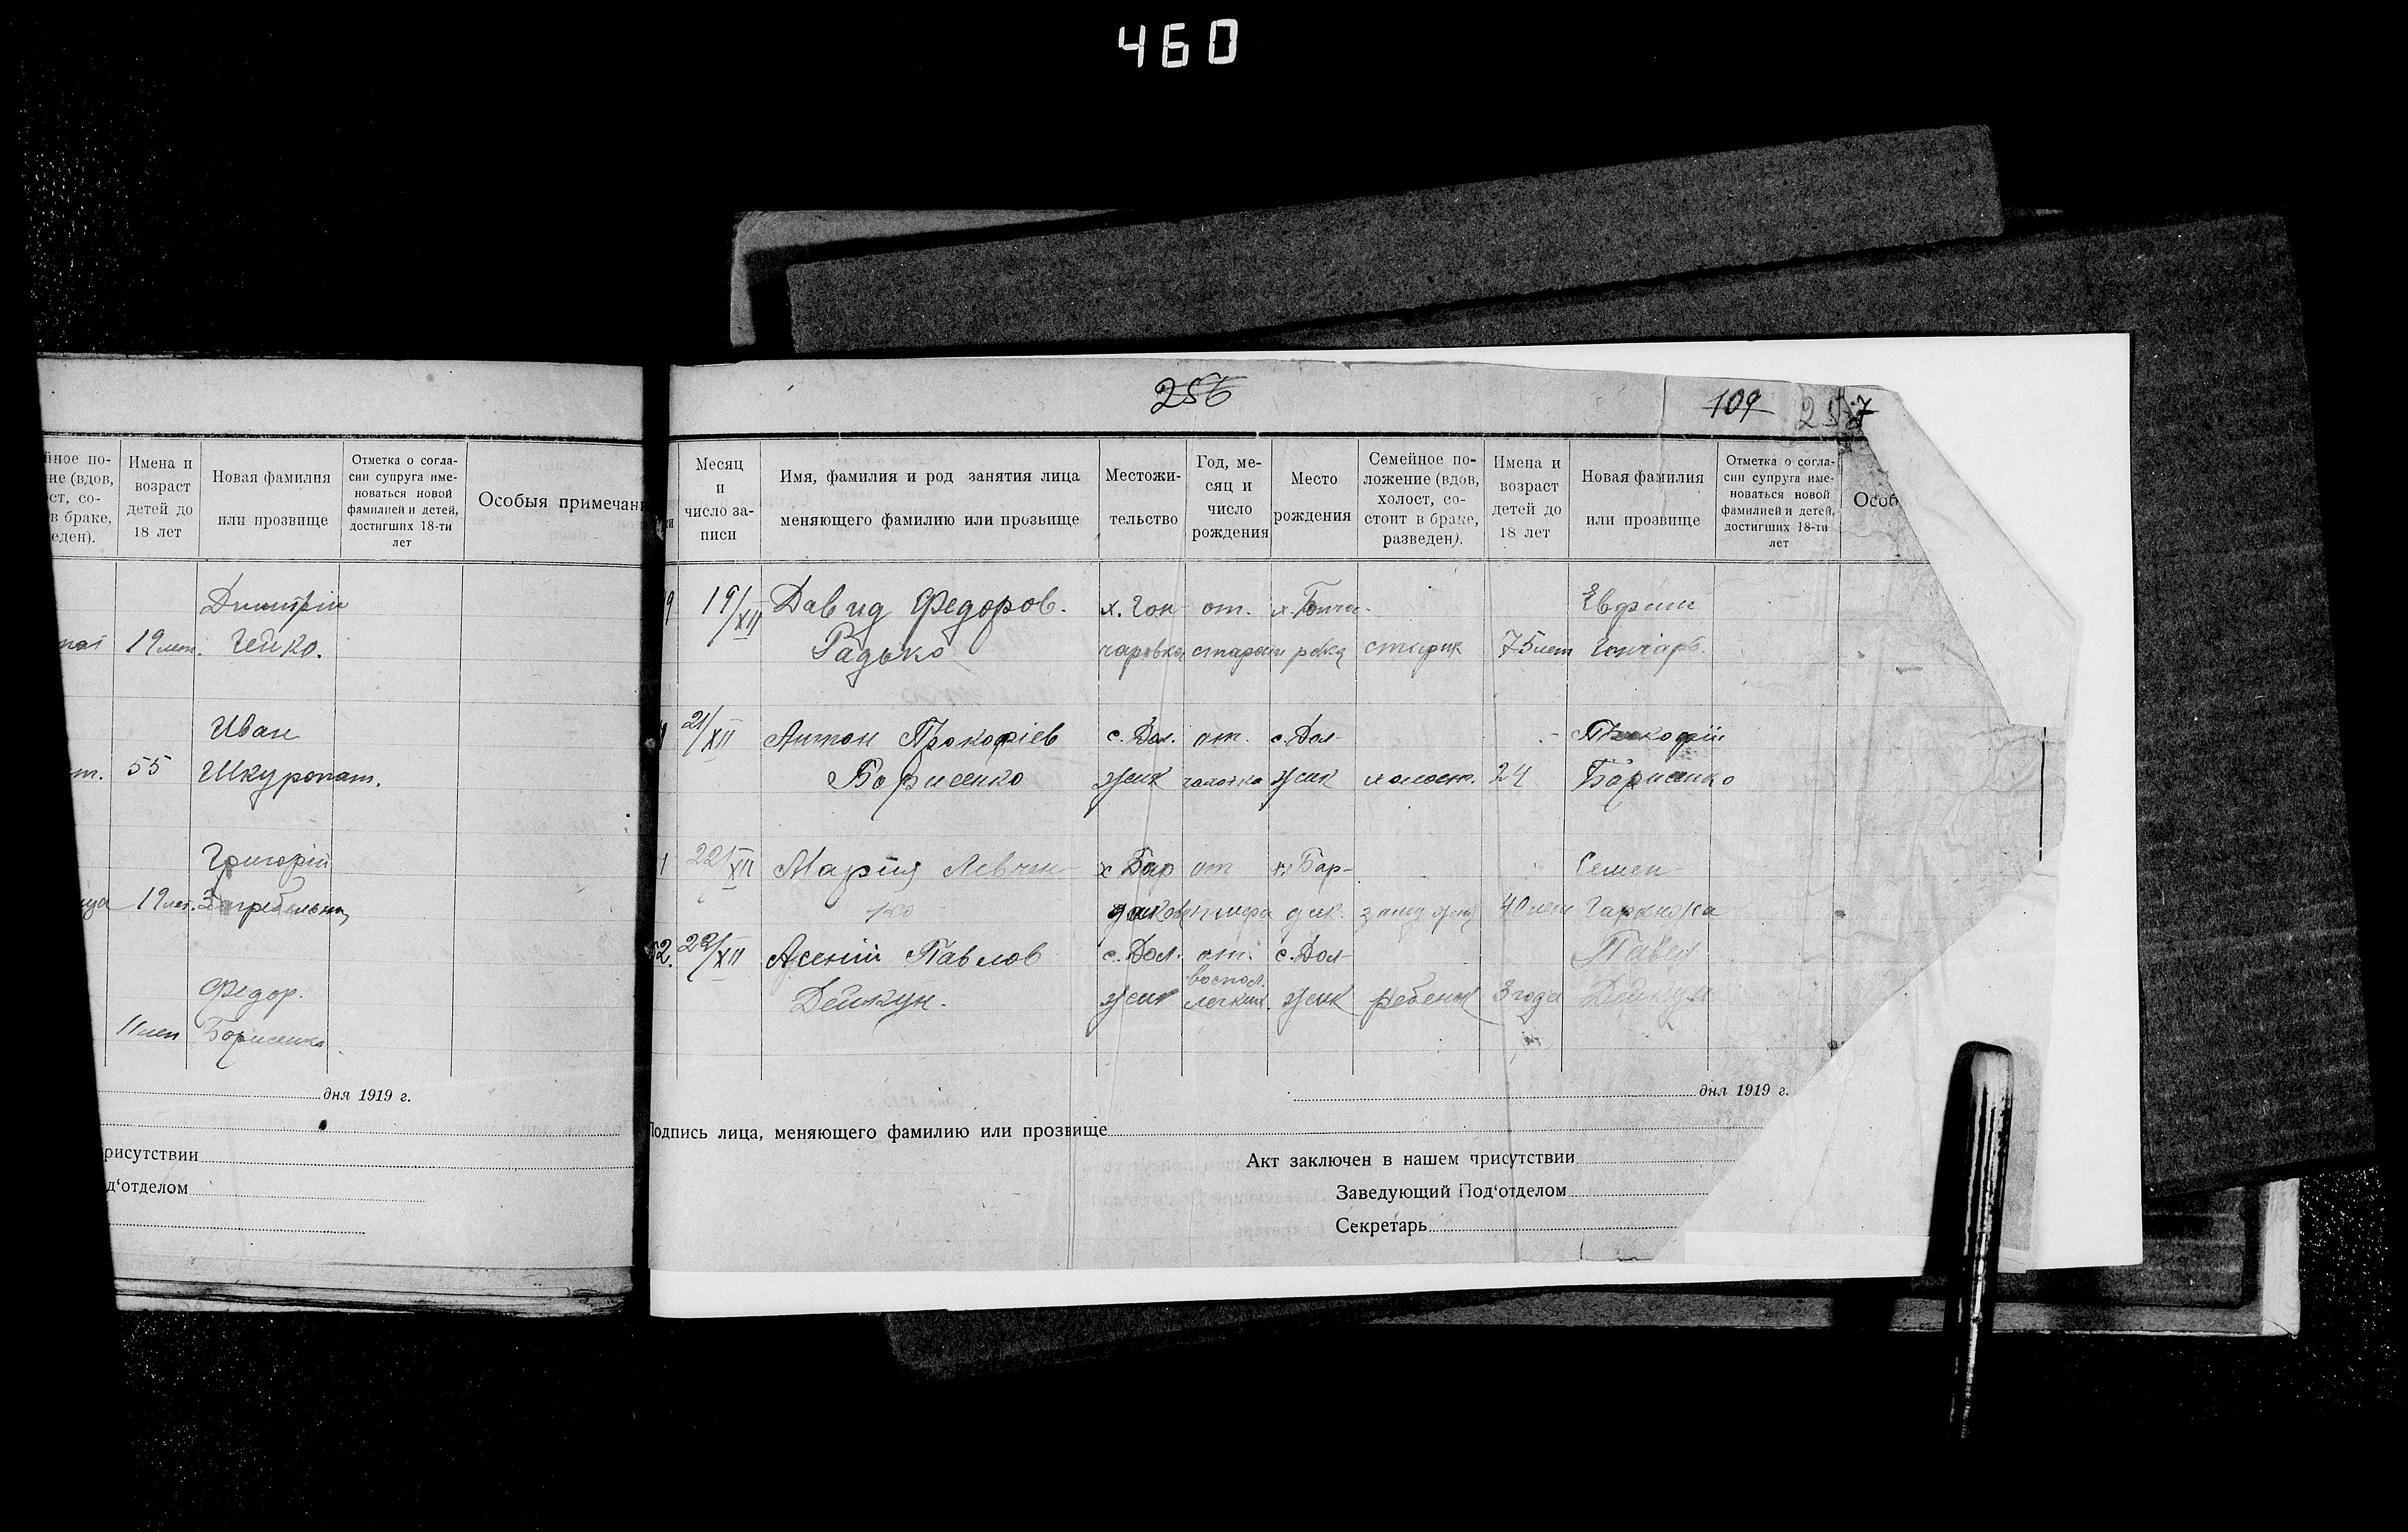 460
йное по-
ние (вдов,
ст, со-
в браке,
еден).
Имена и
возраст
детей до
18 лет
Новая фамилия
или прозвище
Отметка о согла-
сии супруга име-
новаться новой
фамилией и детей,
достигших 18-ти
лет
Особыя примечан
Димитрій
19 лет. Гейко.
Иван
т. 55 Шкуропат.
Григорій
19 лет.
Федор.
11 лет Борисенко
дня 1919 г.
рисутствии
д'отделом
256
109 257
Месяц
и
число за-
писи
Имя, фамилия и род занятия лица
меняющего фамилию или прозвище
Местожи-
тельство
Год, ме-
сяц и
число
рождения
Место
рождения
Семейное по-
ложение (вдов,
холост, со-
стоит в браке,
разведен).
Имена и
возраст
детей до
18 лет
Новая фамилия
или прозвище
Отметка о согла-
сии супруга име-
новаться новой
фамилией и детей,
достигших 18-ти
лет
Особ
9 19/XII Давид Федоров. х. Гон от. х. Гонча-
Радько чаровка старости ровка старик 75 лет Гончарь.
21/XII Антон Прокофіев с. Дол. от. с. Дол-
Борисенко жик чахотка жик холост. 24 Борисенко
22/XII Мария Левчен- х Бар от х. Бар- Семен
ко 40 лет
52. 22/XII Асений Павлов с. Дол. от. с. Дол- Павел
воспал.
Дейкун. жик легких. жик ребенок 3 года Дейкун
дня 1919 г.
Подпись лица, меняющего фамилию или прозвище
Акт заключен в нашем присутствии
Заведующий Под'отделом
Секретарь